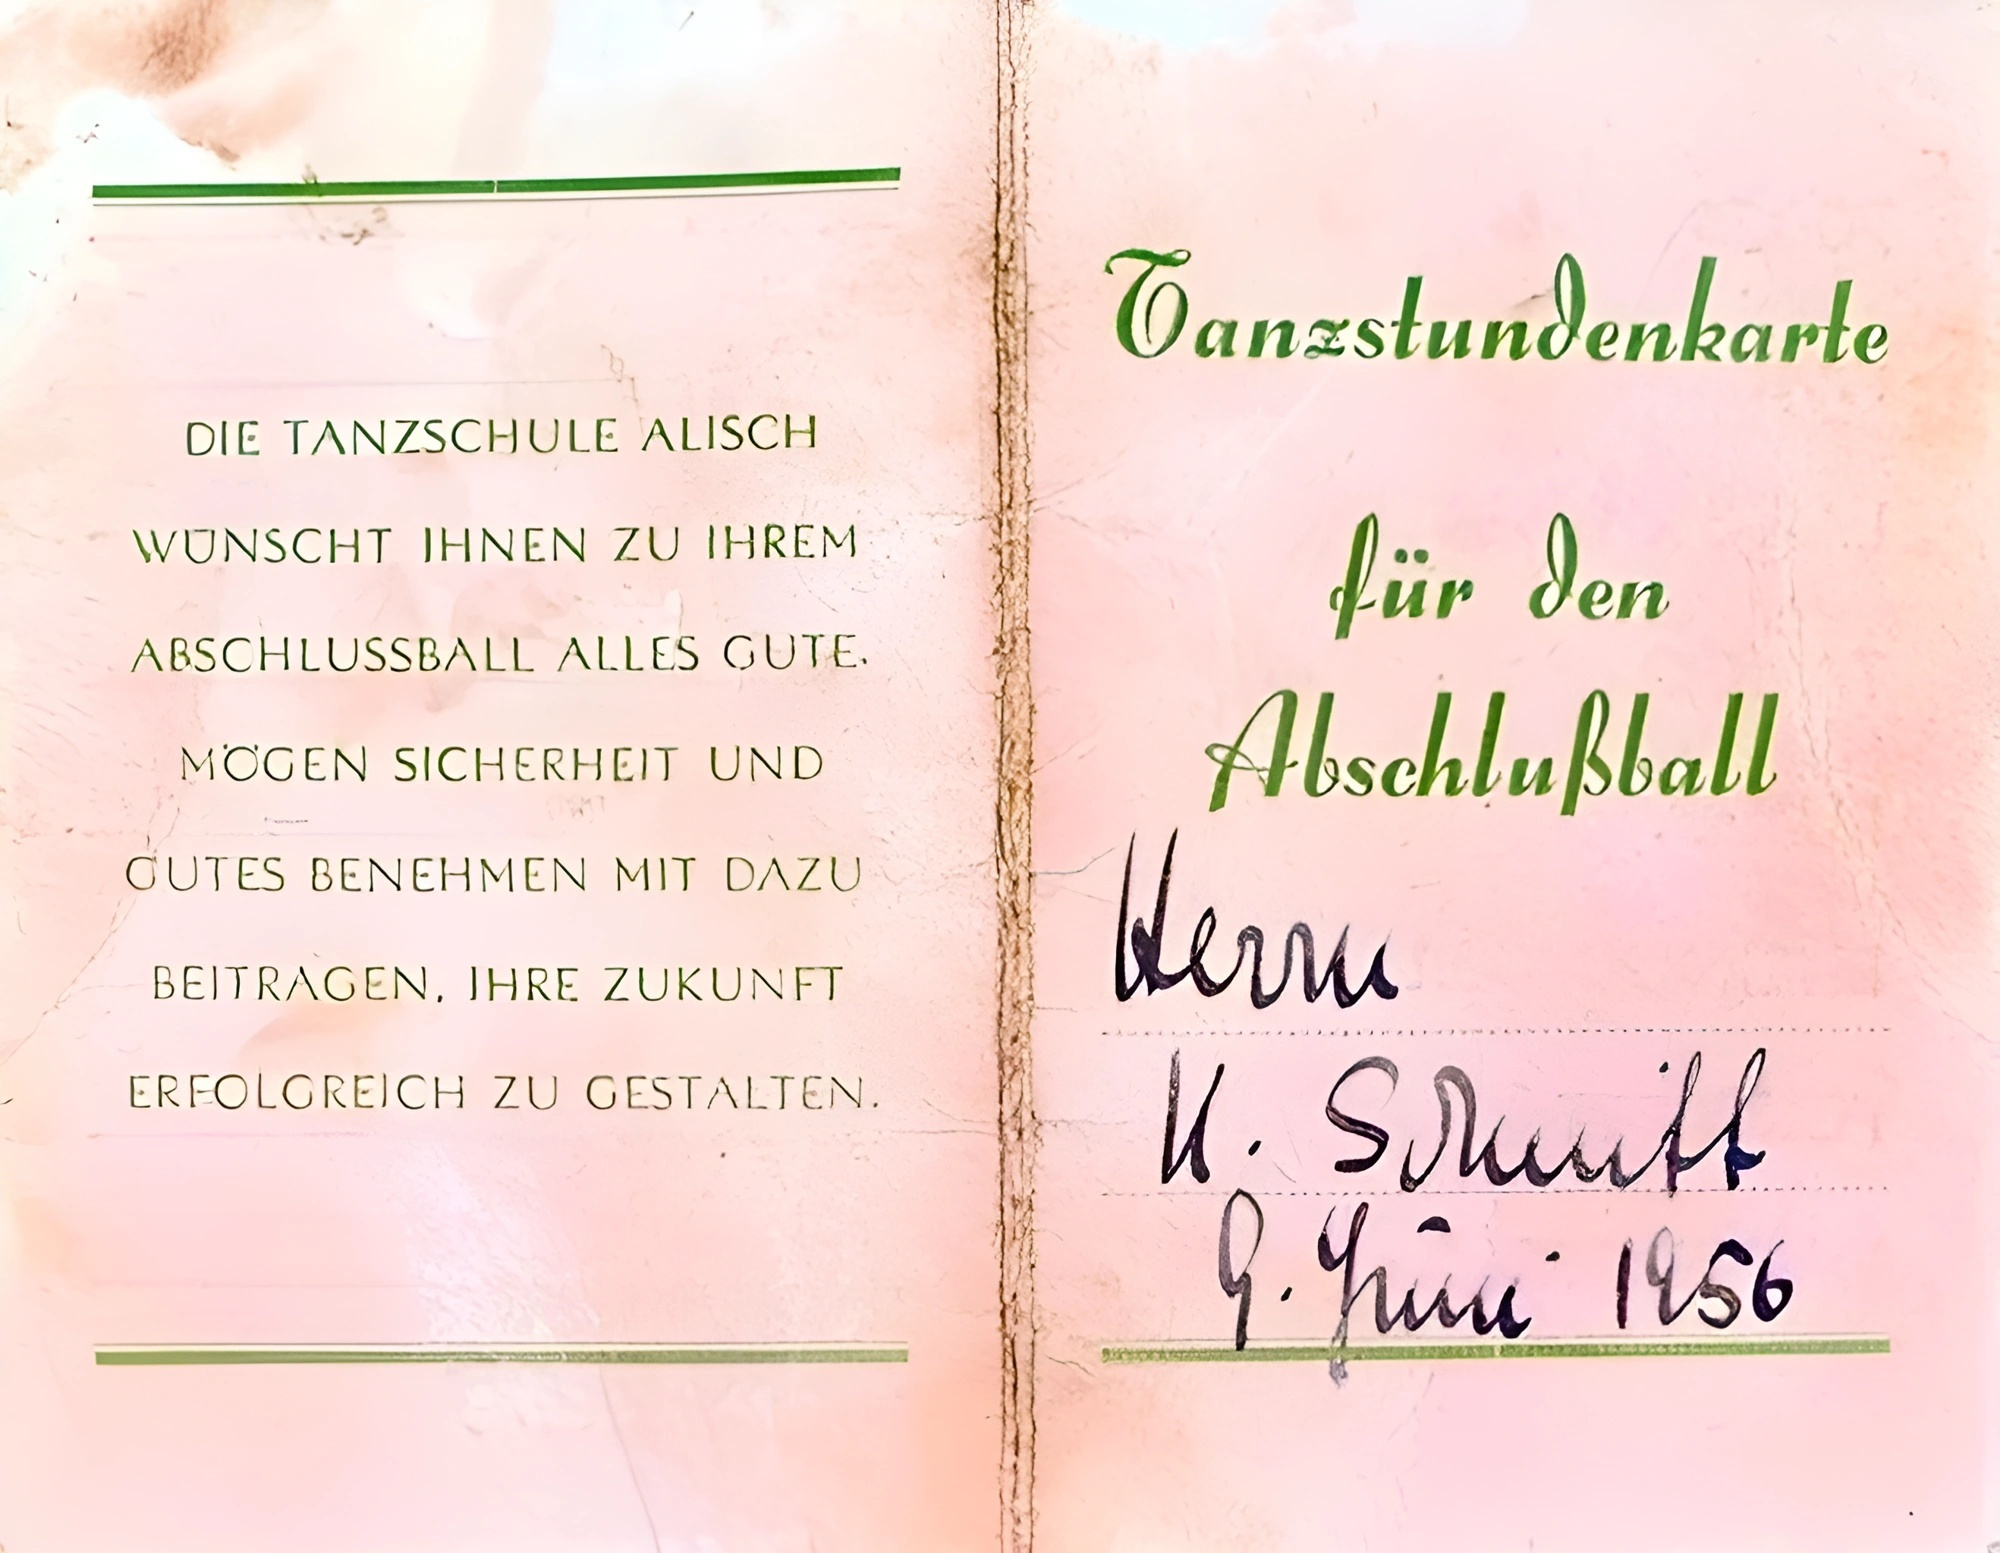 DIE TANZSCHULE ALISCH
WÜNSCHT IHNEN ZU IHREM
ABSCHLUSSBALL ALLES GUTE.
MÖGEN SICHERHEIT UND
GUTES BENEHMEN MIT DAZU
BEITRAGEN, IHRE ZUKUNFT
ERFOLGREICH ZU GESTALTEN.
Tanzstundenkarte
für den
Abschlußball
Herrn
K. Schmitt
9. Juni 1956